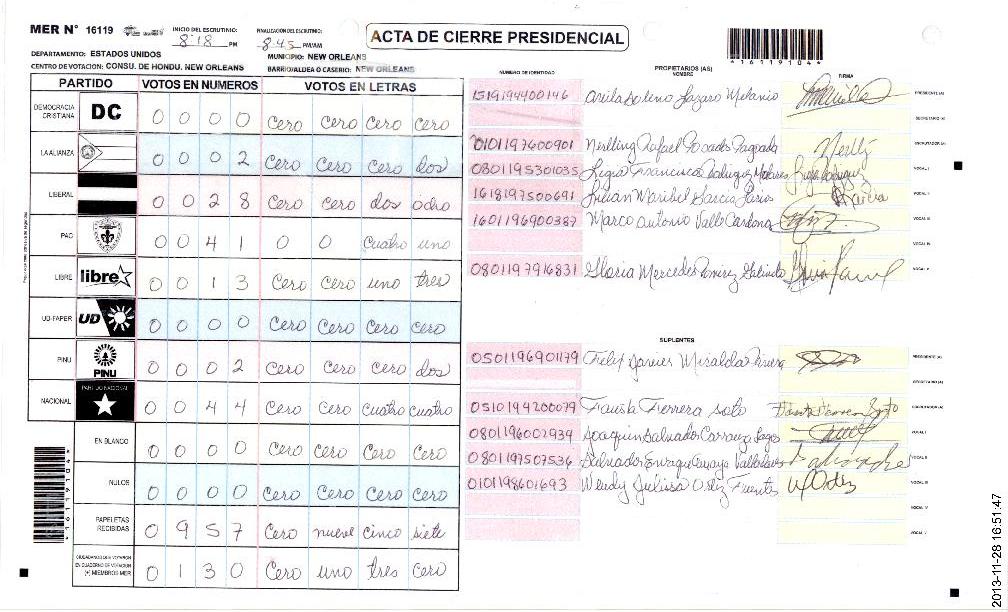 MER N° 16119 INICIO DEL ESCRUTINIO: 8:18 PM FINALIZACION DEL ESCRUTINIO: 8:45 PM/AM
ACTA DE CIERRE PRESIDENCIAL
*1611910 4*
DEPARTAMENTO: ESTADOS UNIDOS MUNICIPIO: NEW ORLEANS
CENTRO DE VOTACION: CONSU. DE HONDU. NEW ORLEANS BARRIO/ALDEA O CASERIO: NEW ORLEANS
PARTIDO VOTOS EN NUMEROS VOTOS EN LETRAS
DEMOCRACIA CRISTIANA DC 0 0 0 0 Cero Cero Cero Cero
LA ALIANZA 0 0 0 2 Cero Cero Cero dos
LIBERAL 0 0 2 8 Cero Cero dos ocho
PAC 0 0 4 1 0 0 Cuatro uno
LIBRE libre 0 0 1 3 Cero Cero uno tres
UD-FAPER UD 0 0 0 0 Cero Cero Cero Cero
PINU PINU 0 0 0 2 Cero Cero Cero dos
NACIONAL PARTIDO NACIONAL 0 0 4 4 Cero Cero Cuatro Cuatro
EN BLANCO 0 0 0 0 Cero Cero Cero Cero
NULOS 0 0 0 0 Cero Cero Cero Cero
PAPELETAS RECIBIDAS 0 9 5 7 Cero nueve cinco siete
CIUDADANOS QUE VOTARON EN CUADERNO DE VOTACION (+) MIEMBROS MER 0 1 3 0 Cero uno tres cero
NUMERO DE IDENTIDAD PROPIETARIOS (AS) NOMBRE FIRMA
1519194400146 Lazaro Melanio PRESIDENTE (A)
SECRETARIO (A)
0101197600901 Nerlling Rafael Posadas Paguada ESCRUTADOR (A)
0801195301035 Ligia Francisca VOCAL I
1618197500691 Lilian Maribel Garcia VOCAL II
1601196900387 Marco Antonio Valle Cardona VOCAL III
VOCAL IV
0801197916831 Gloria Mercedes Ramirez Galindo VOCAL V
SUPLENTES
0501196901179 Felix Javier Miralda PRESIDENTE (A)
SECRETARIO (A)
0510194200079 Fausta Ferrera Soto ESCRUTADOR (A)
0801196002939 Joaquin Salvador Carranza Lagos VOCAL I
0801197507536 Salvador Enrique VOCAL II
0101198601693 Wendy Julissa Ortiz Fuentes VOCAL III
VOCAL IV
VOCAL V
2013-11-28 16:51:47